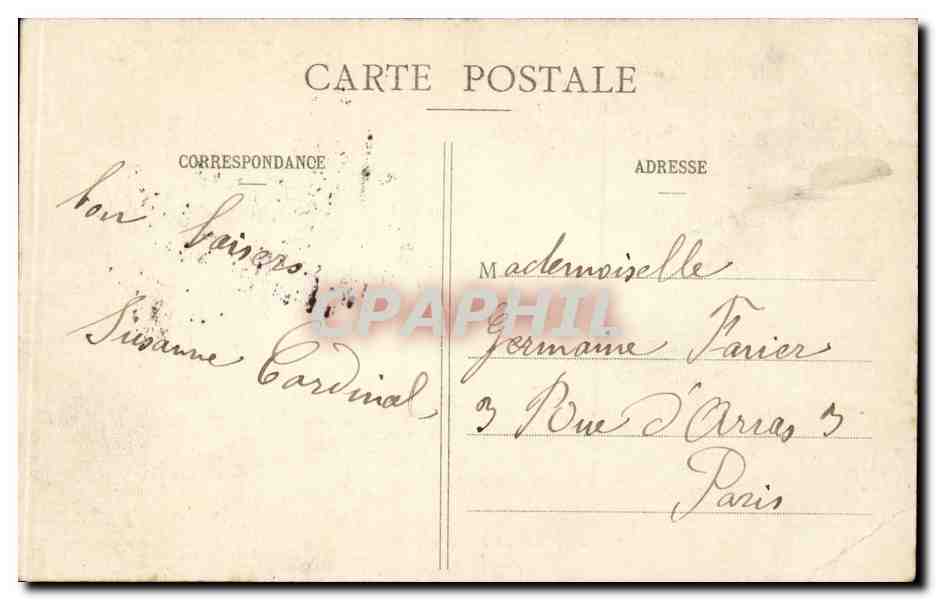 CARTE POSTALE
CORRESPONDANCE
bon baisers
Susanne Cardinal
ADRESSE
Mademoiselle
Germaine Farier
3 Rue d'Arras 3
Paris
CPAPHIL